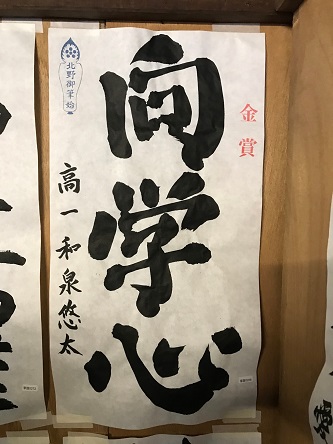 金賞
向学心
高一和泉悠太
北野御筆始